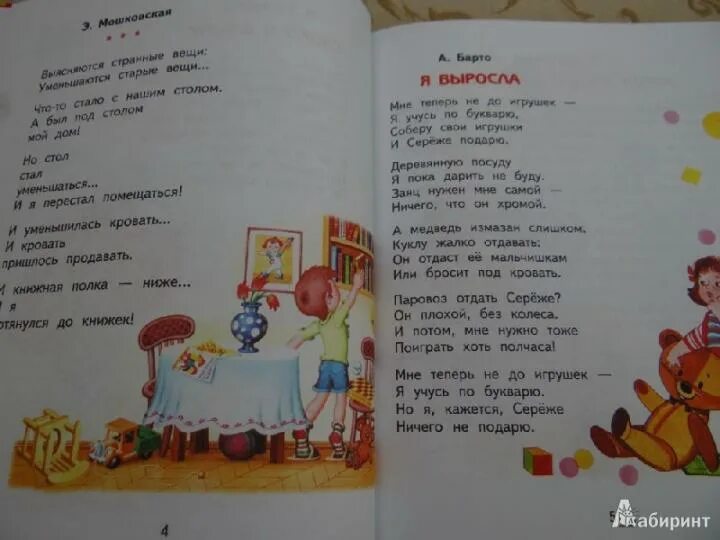 Э. Мошковская
* * *
Выясняются странные вещи:
Уменьшаются старые вещи...
Что-то стало с нашим столом.
А был под столом
мой дом!
Но стол
стал
уменьшаться...
И я перестал помещаться!
И уменьшилась кровать...
И кровать
пришлось продавать.
И книжная полка — ниже...
И я
отянулся до книжек!
4
А. Барто
Я ВЫРОСЛА
Мне теперь не до игрушек —
Я учусь по букварю,
Соберу свои игрушки
И Серёже подарю.
Деревянную посуду
Я пока дарить не буду.
Заяц нужен мне самой —
Ничего, что он хромой.
А медведь измазан слишком,
Куклу жалко отдавать:
Он отдаст её мальчишкам
Или бросит под кровать.
Паровоз отдать Серёже?
Он плохой, без колеса.
И потом, мне нужно тоже
Поиграть хоть полчаса!
Мне теперь не до игрушек —
Я учусь по букварю.
Но я, кажется, Серёже
Ничего не подарю.
5
Лабиринт